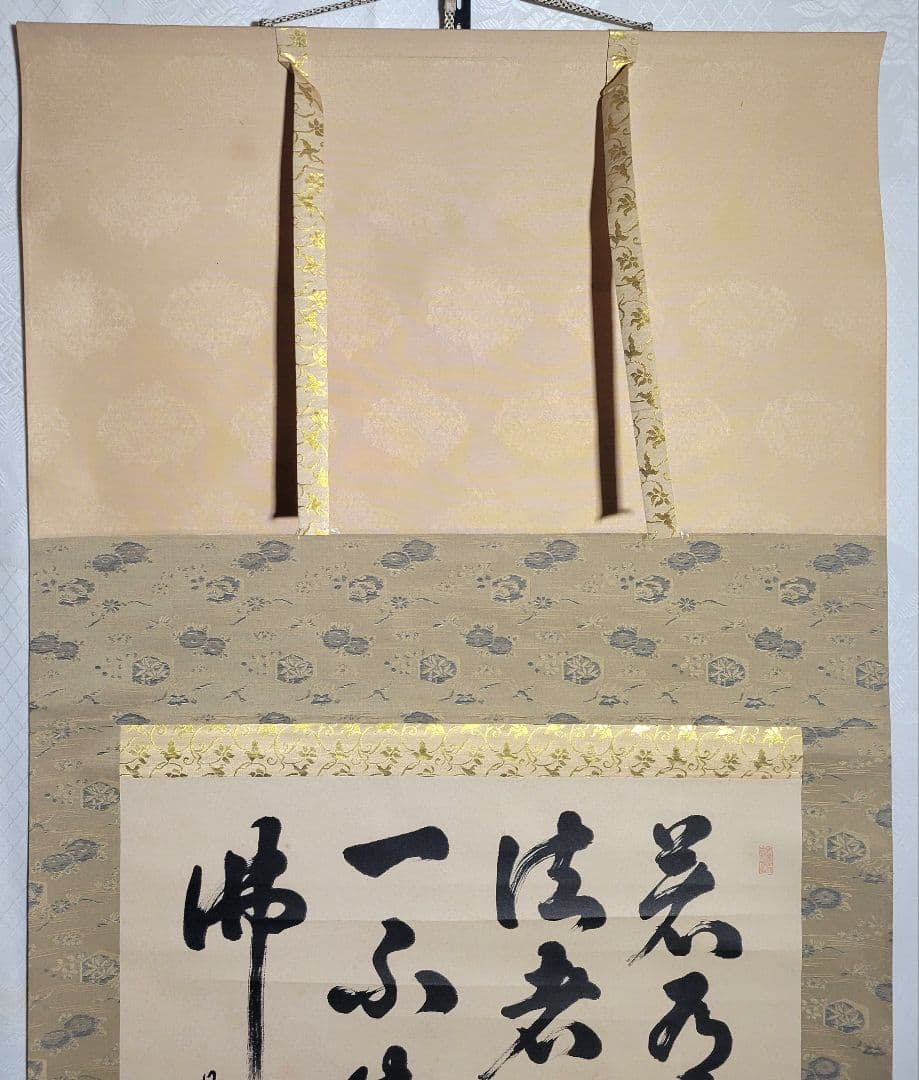 若有
法者
一不
佛